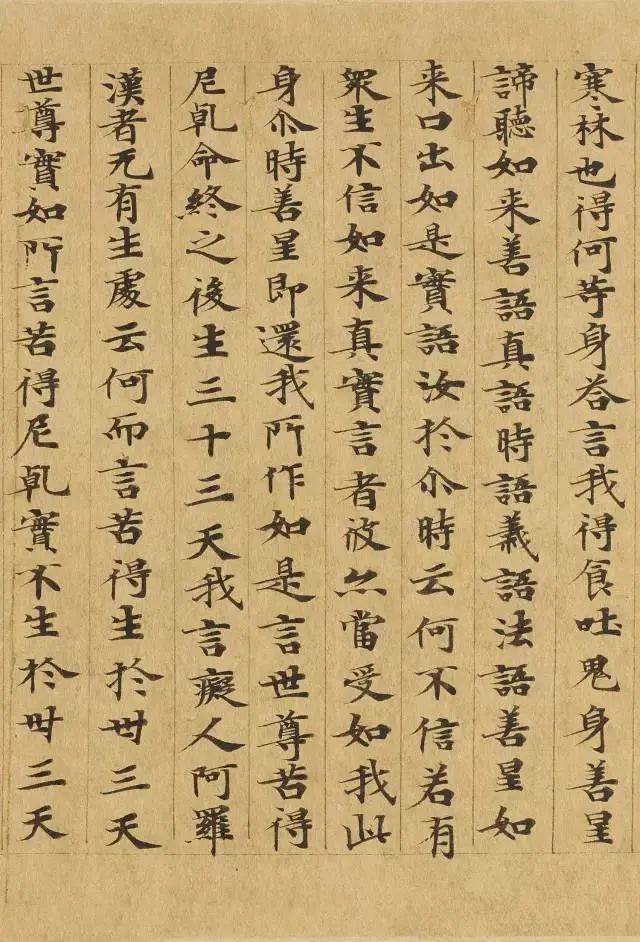 寒林也得何䓁身荅言我得食吐鬼身善星
諦聽如来善語真語時語義語法語善星如
来口出如是實語汝於尒時云何不信若有
衆生不信如来真實言者彼亦當受如我此
身尒時善星即還我所作如是言世尊苦得
尼乹命終之後生三十三天我言癡人阿羅
漢者无有生處云何而言苦得生於丗三天
世尊實如所言苦得尼乹實不生於丗三天